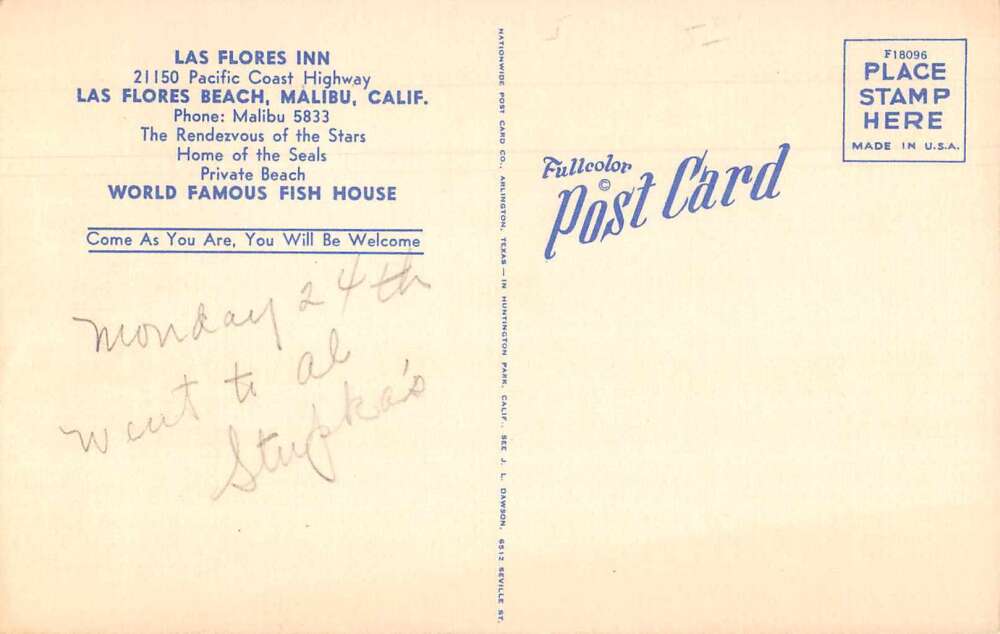 LAS FLORES INN
21150 Pacific Coast Highway
LAS FLORES BEACH, MALIBU, CALIF.
Phone: Malibu 5833
The Rendezvous of the Stars
Home of the Seals
Private Beach
WORLD FAMOUS FISH HOUSE
Come As You Are, You Will Be Welcome
Monday 24th
went to al
Stupka's
NATIONWIDE POST CARD CO., ARLINGTON, TEXAS — IN HUNTINGTON PARK, CALIF., SEE J. L. DAWSON, 6512 SEVILLE ST.
Fullcolor
©
Post Card
F18096
PLACE
STAMP
HERE
MADE IN U.S.A.